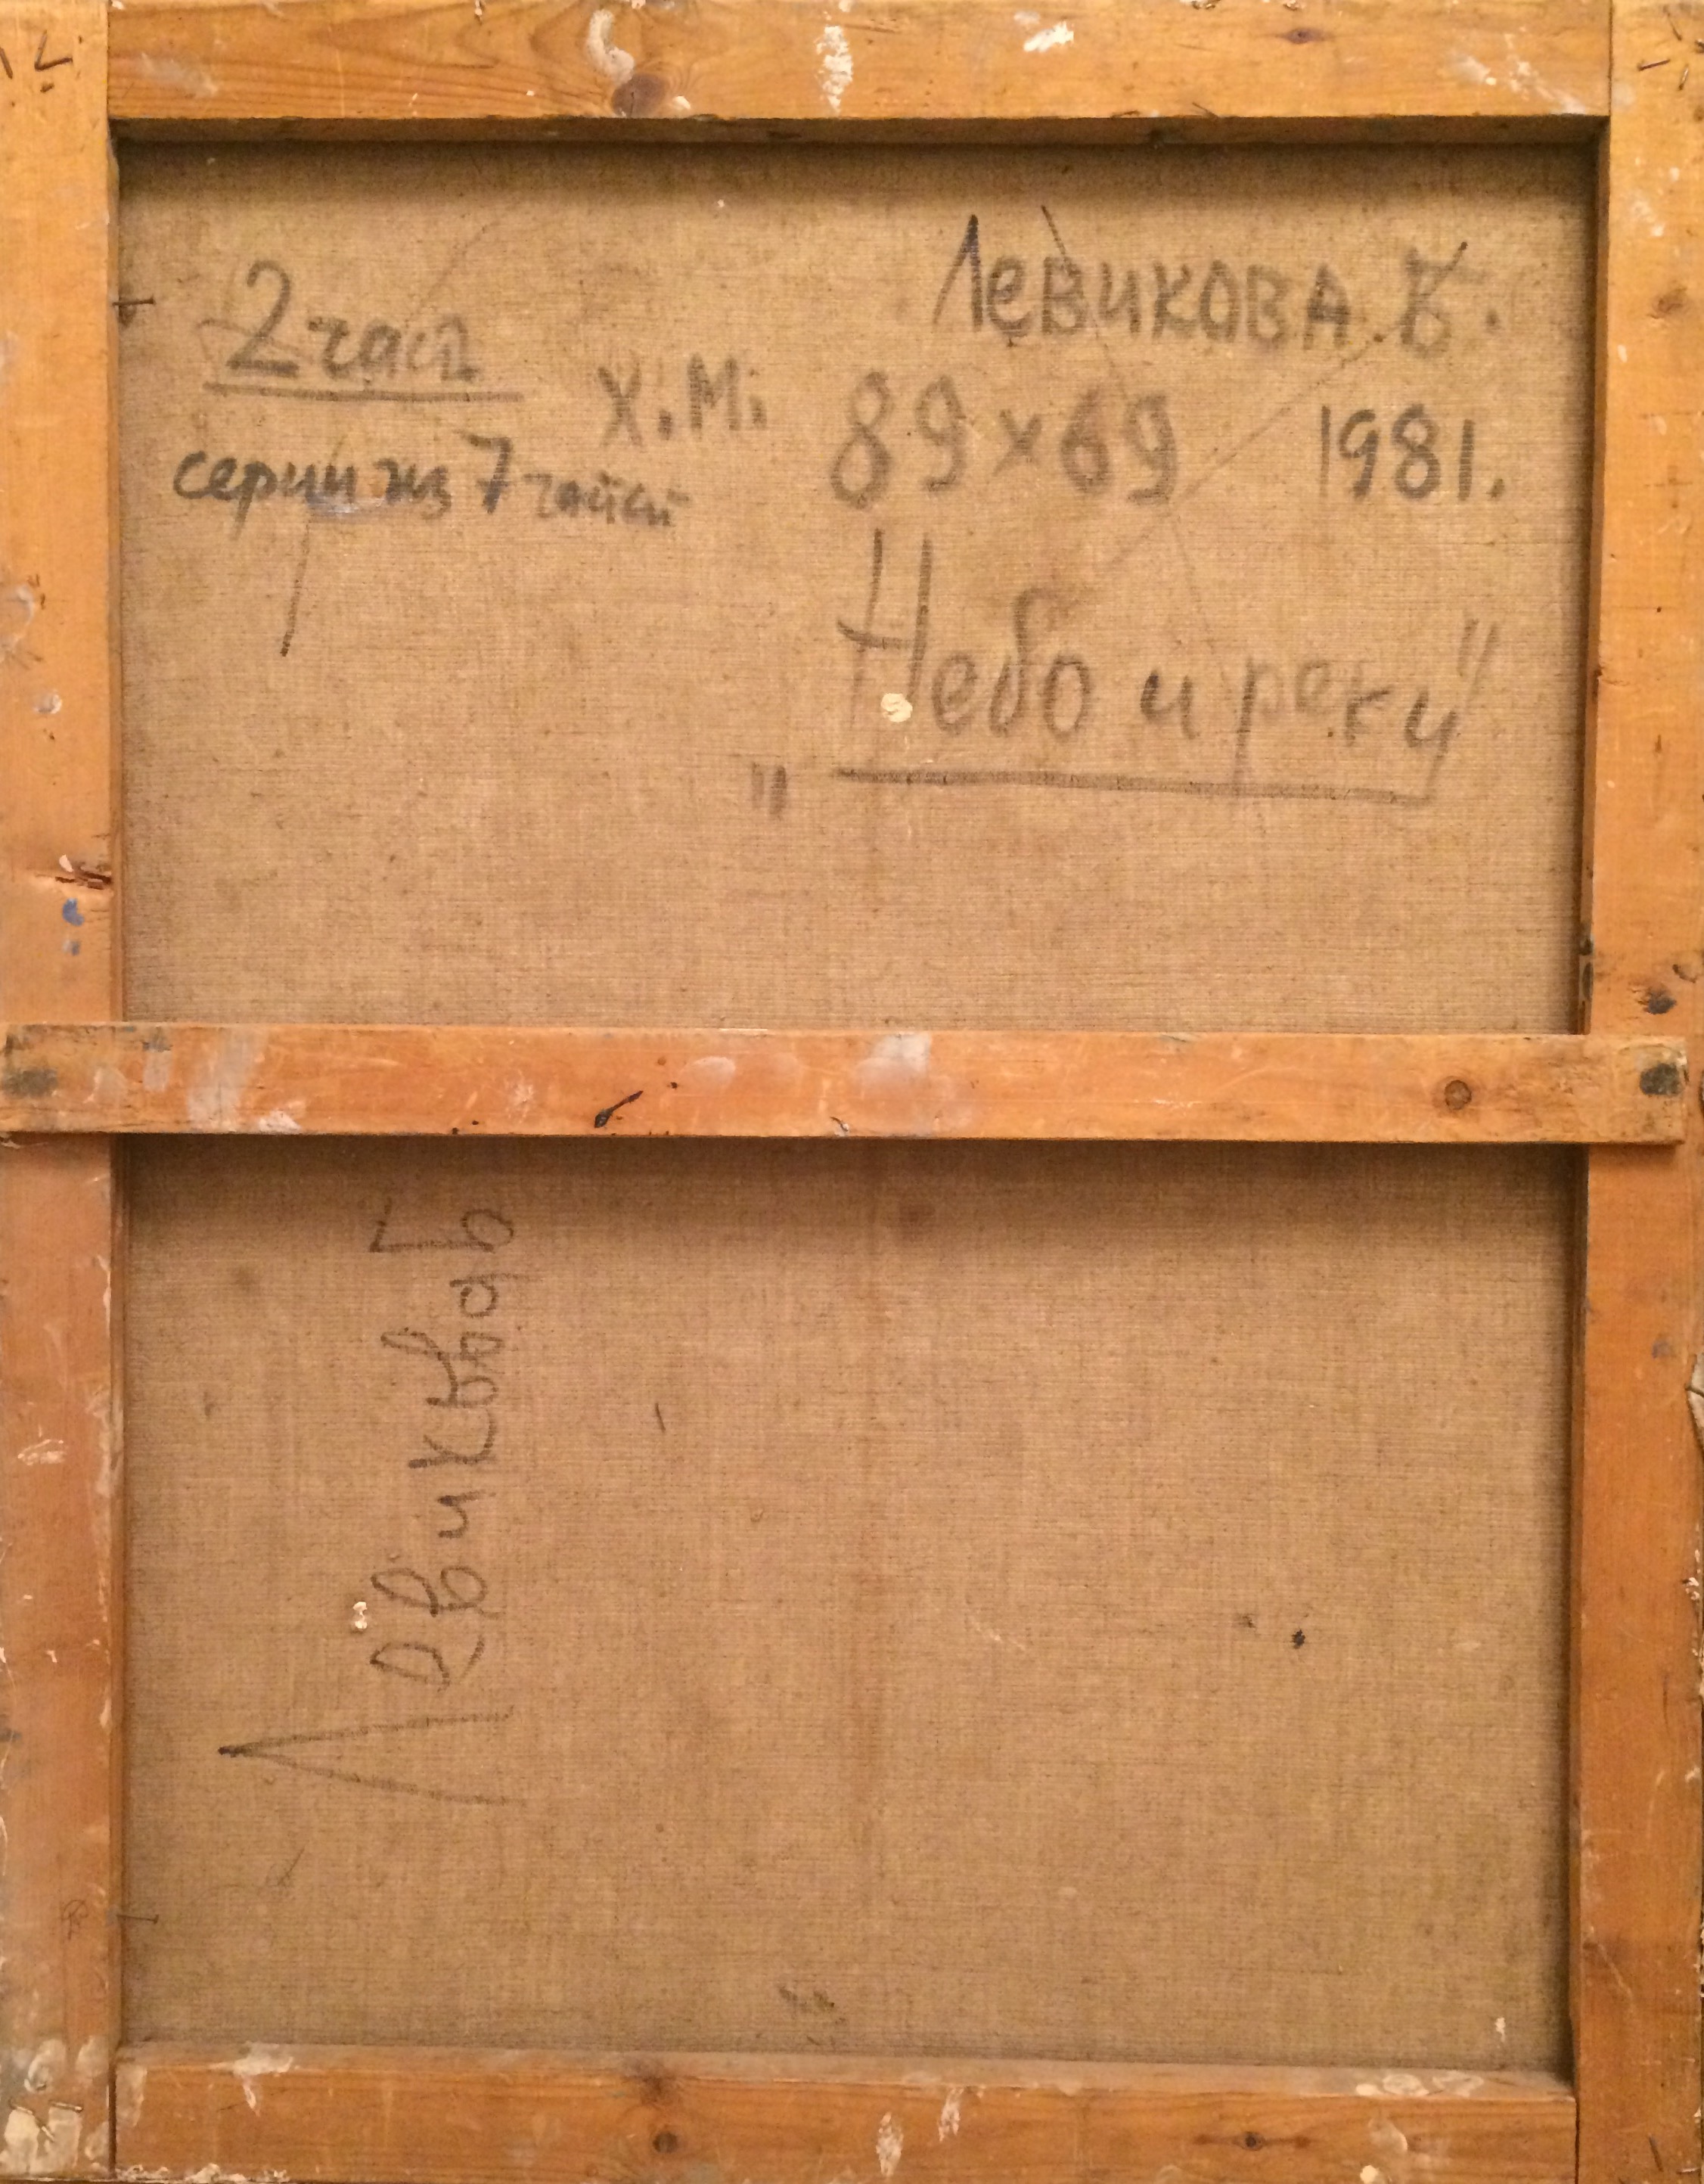 Левикова. Б.
2 част
Х.М. 89×69 1981.
серии из 7 частей
„Небо и реки"
Левикова Б